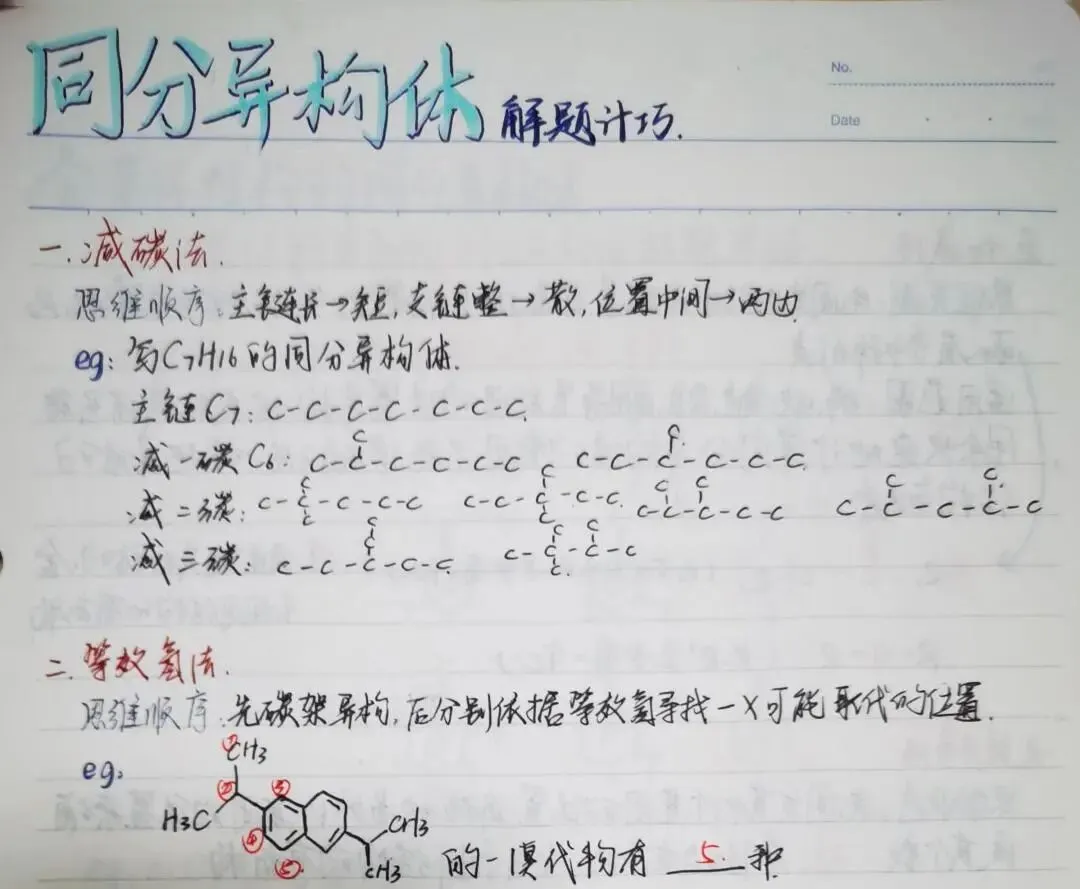 同分异构体 解题计巧.
No.
Date
一.减碳法.
思维顺序:主链长→短,支链整→散,位置中间→两边
eg:写C7H16的同分异构体.
主链C7:C-C-C-C-C-C-C.
减一碳C6:C-C-C-C-C-C C-C-C-C-C-C.
C C
减二碳:C-C-C-C-C C-C-C-C-C. C-C-C-C-C C-C-C-C-C
C C C C C C C C
减三碳:C-C-C-C-C. C-C-C-C
C C C C C
二.等效氢法.
思维顺序:先碳架异构,后分别依据等效氢寻找-X可能取代的位置.
eg.
① CH3
② ③
H3C ④ CH3
⑤ CH3 的一溴代物有 5 种